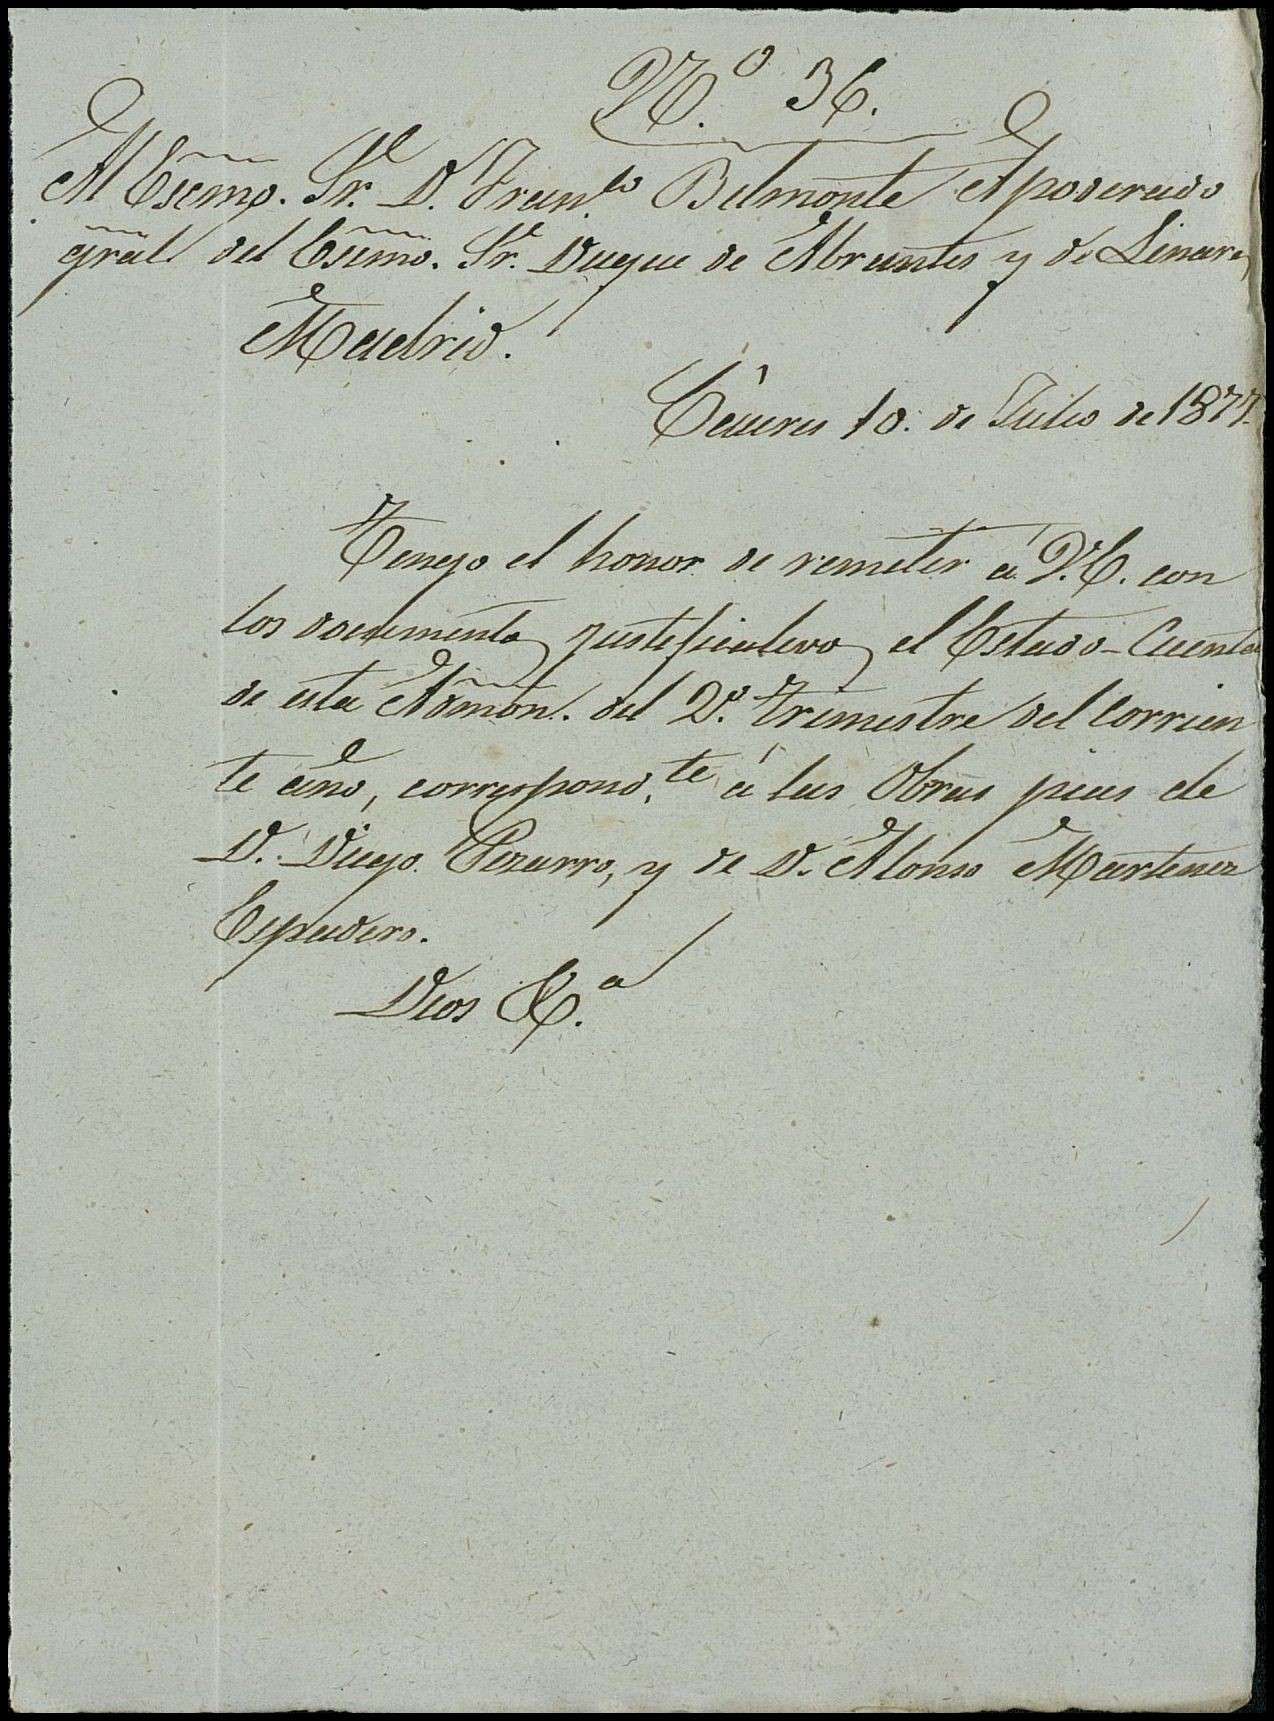 N.º 36.
Al Escmo. Sr. D. Fran.co Belmonte Apoderado
gral del Escmo. Sr. Duque de Abrantes y de Linares
Madrid.
Cáceres 10. de Julio de 1877.
Tengo el honor de remitir á V.E. con
los documentos justificativos el Estado-Cuenta
de esta Admón. del 2º. trimestre del corrien
te año, correspond.te á las Obras pias de
D. Diego Pizarro, y de D. Alonso Martinez
Espadero.
Dios &.a